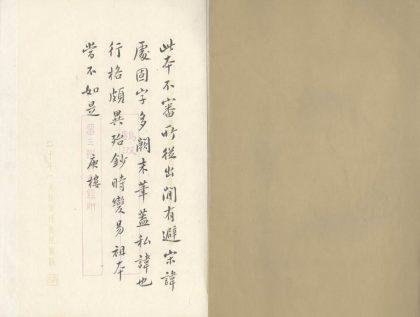 此本不審所從出閒有避宗諱
處固字多闕末筆蓋私諱也
行格頗異殆鈔時變易祖本
當不如是 庚樓